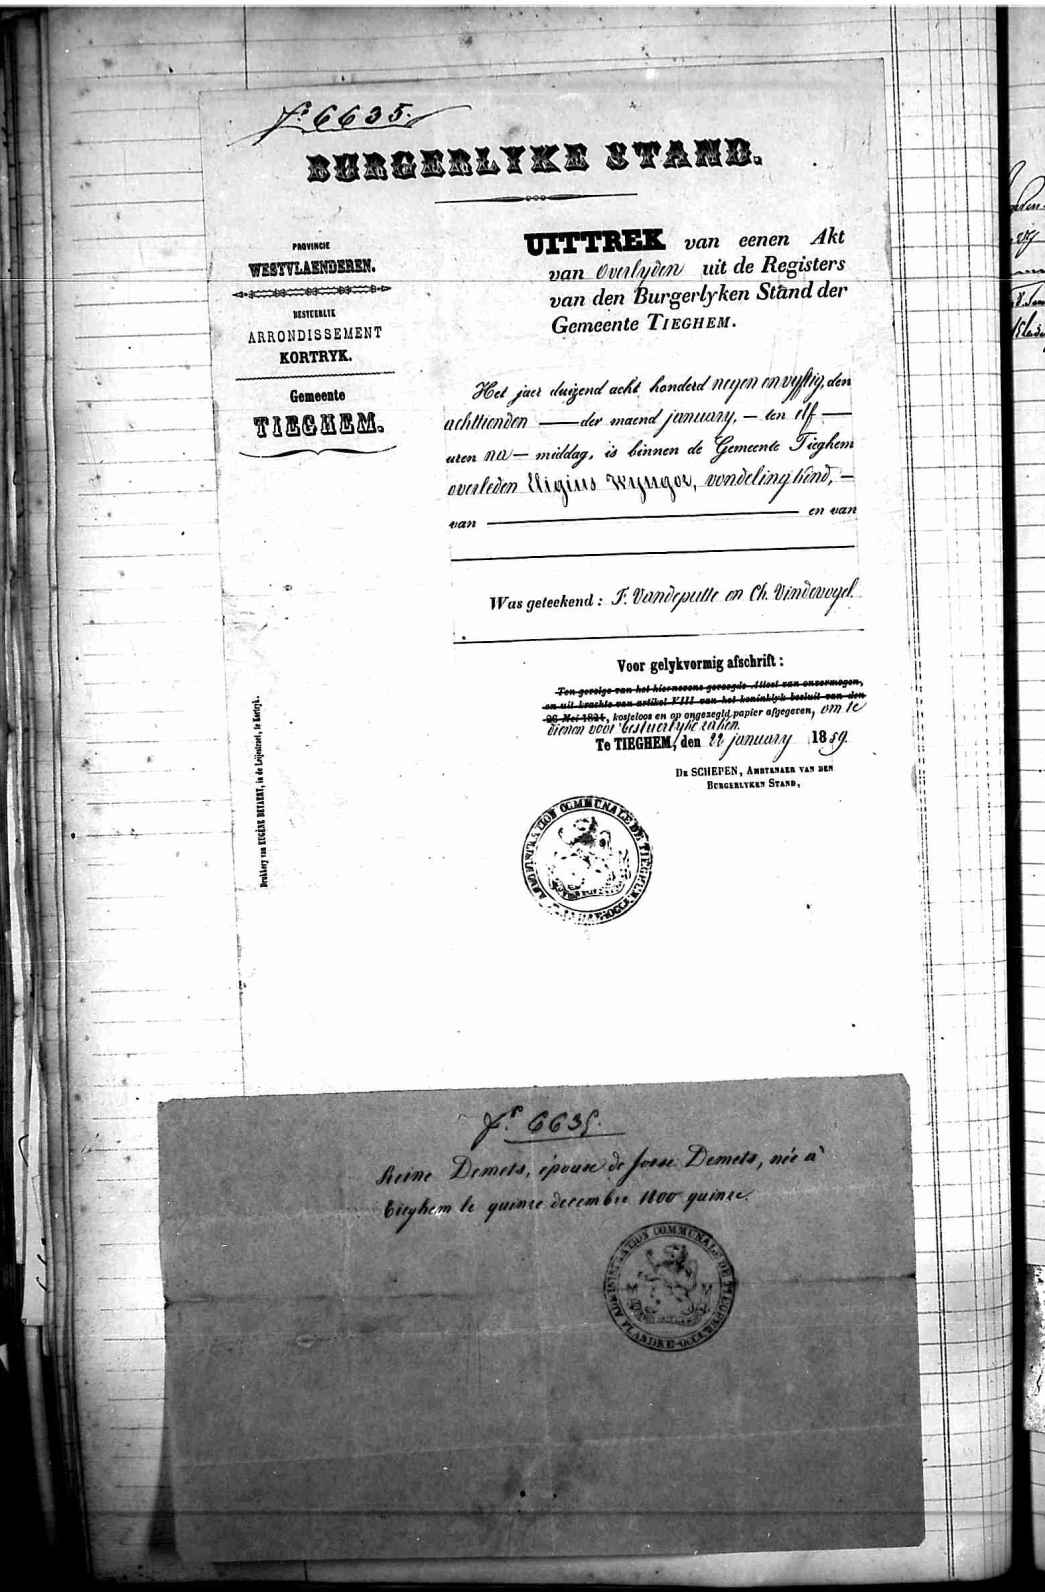 fº 6635.
BURGERLYKE STAND.
PROVINCIE
WESTVLAENDEREN.
BESTUERLYK
ARRONDISSEMENT
KORTRYK.
Gemeente
TIEGHEM.
UITTREK van eenen Akt
van Overlyden uit de Registers
van den Burgerlyken Stand der
Gemeente TIEGHEM.
Het jaer duizend acht honderd negen en vyftig, den
achttienden — der maend january, — ten elf —
uren na — middag, is binnen de Gemeente Tieghem
overleden Eligius Wynger, vondeling kind, —
van — en van
Was geteekend : F. Vandeputte en Ch. Vindevogel.
Voor gelykvormig afschrift :
Ten gevolge van het hiernevens gevoegde Attest van onvermogen,
en uit krachte van artikel VIII van het koninklyk besluit van den
26 Mei 1824, kosteloos en op ongezegld papier afgegeven, om te
dienen voor bestuerlyke zaken.
Te TIEGHEM, den 22 january 1859.
DE SCHEPEN, AMBTENAER VAN DEN
BURGERLYKEN STAND,
Drukkery van EUGÈNE BEYAERT, in de Leijestraet, te Kortryk.
ADMINISTRATION COMMUNALE DE TIEGHEM
fº 6635.
Reine Demets, épouse de Josse Demets, née à
Tieghem le quinze decembre 1800 quinze.
ADMINISTRATION COMMUNALE DE TIEGHEM FLANDRE-OCCID.